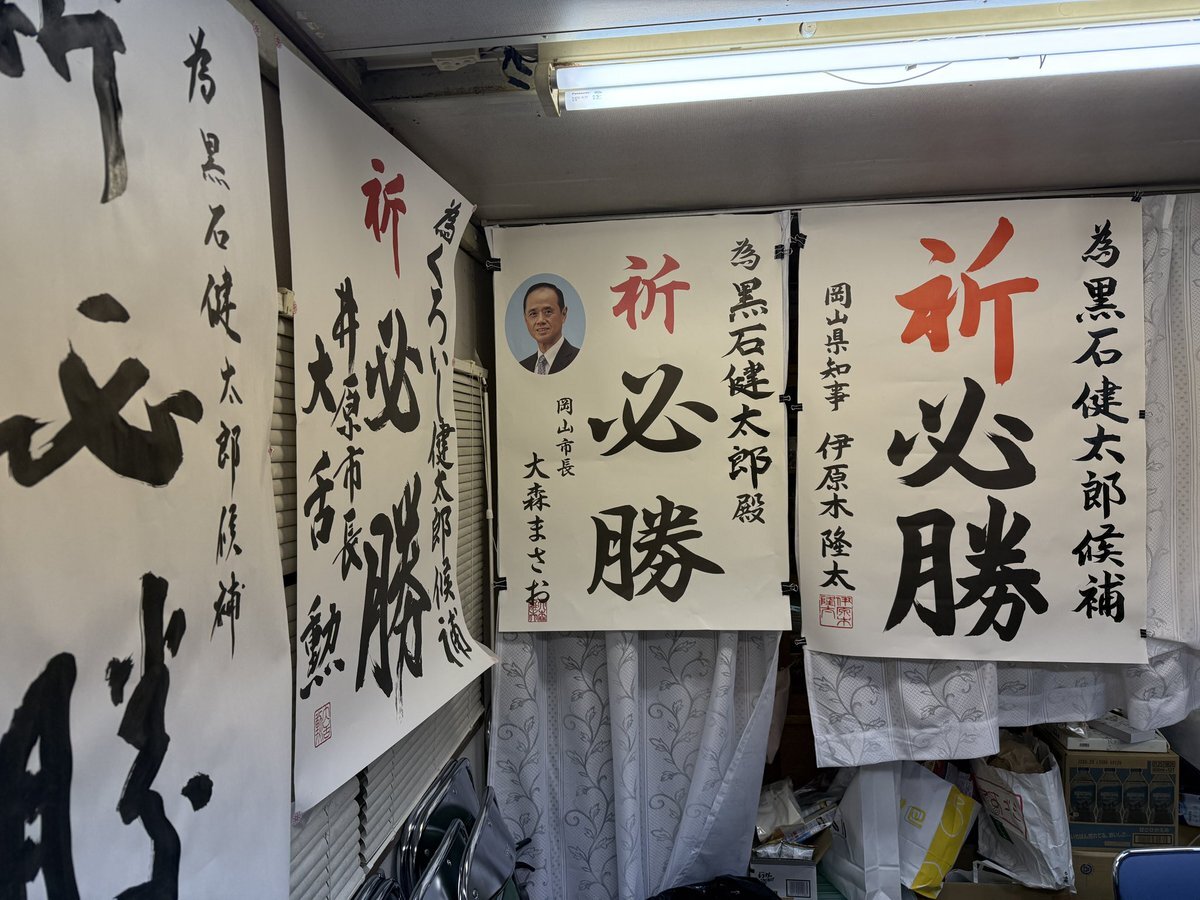 為黒石健太郎候補
祈
必勝
岡山県知事 伊原木隆太
為黒石健太郎殿
祈
必勝
岡山市長
大森まさお
為くろいし健太郎候補
祈
必勝
井原市長
大舌勲
為黒石健太郎候補
祈
必勝